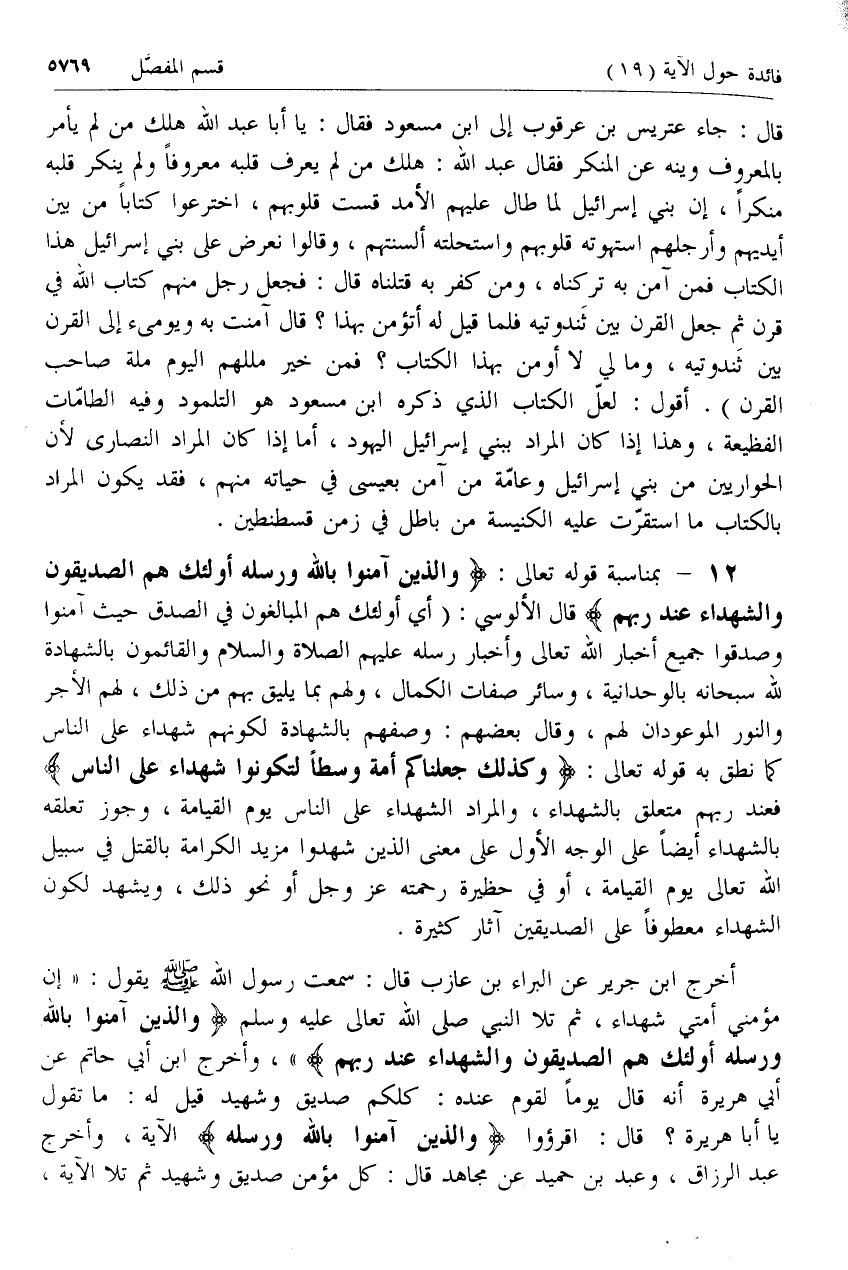 فائدة حول الآية (١٩) قسم المفصَّل ٥٧٦٩
قال : جاء عتريس بن عرقوب إلى ابن مسعود فقال : يا أبا عبد الله هلك من لم يأمر
بالمعروف وينه عن المنكر فقال عبد الله : هلك من لم يعرف قلبه معروفاً ولم ينكر قلبه
منكراً ، إن بني إسرائيل لما طال عليهم الأمد قست قلوبهم ، اخترعوا كتاباً من بين
أيديهم وأرجلهم استهوته قلوبهم واستحلته ألسنتهم ، وقالوا نعرض على بني إسرائيل هذا
الكتاب فمن آمن به تركناه ، ومن كفر به قتلناه قال : فجعل رجل منهم كتاب الله في
قرن ثم جعل القرن بين ثَندوتيه فلما قيل له أتؤمن بهذا ؟ قال آمنت به ويومىء إلى القرن
بين ثَندوتيه ، وما لي لا أومن بهذا الكتاب ؟ فمن خير مللهم اليوم ملة صاحب
القرن ) . أقول : لعلّ الكتاب الذي ذكره ابن مسعود هو التلمود وفيه الطامّات
الفظيعة ، وهذا إذا كان المراد ببني إسرائيل اليهود ، أما إذا كان المراد النصارى لأن
الحواريين من بني إسرائيل وعامّة من آمن بعيسى في حياته منهم ، فقد يكون المراد
بالكتاب ما استقرّت عليه الكنيسة من باطل في زمن قسطنطين .
١٢ – بمناسبة قوله تعالى : ﴿ والذين آمنوا بالله ورسله أولئك هم الصديقون
والشهداء عند ربهم ﴾ قال الألوسي : ( أي أولئك هم المبالغون في الصدق حيث آمنوا
وصدقوا جميع أخبار الله تعالى وأخبار رسله عليهم الصلاة والسلام والقائمون بالشهادة
لله سبحانه بالوحدانية ، وسائر صفات الكمال ، ولهم بما يليق بهم من ذلك ، لهم الأجر
والنور الموعودان لهم ، وقال بعضهم : وصفهم بالشهادة لكونهم شهداء على الناس
كما نطق به قوله تعالى : ﴿ وكذلك جعلناكم أمة وسطاً لتكونوا شهداء على الناس ﴾
فعند ربهم متعلق بالشهداء ، والمراد الشهداء على الناس يوم القيامة ، وجوز تعلقه
بالشهداء أيضاً على الوجه الأول على معنى الذين شهدوا مزيد الكرامة بالقتل في سبيل
الله تعالى يوم القيامة ، أو في حظيرة رحمته عز وجل أو نحو ذلك ، ويشهد لكون
الشهداء معطوفاً على الصديقين آثار كثيرة .
أخرج ابن جرير عن البراء بن عازب قال : سمعت رسول الله ﷺ يقول : « إن
مؤمني أمتي شهداء ، ثم تلا النبي صلى الله تعالى عليه وسلم ﴿ والذين آمنوا بالله
ورسله أولئك هم الصديقون والشهداء عند ربهم ﴾ » ، وأخرج ابن أبي حاتم عن
أبي هريرة أنه قال يوماً لقوم عنده : كلكم صديق وشهيد قيل له : ما تقول
يا أبا هريرة ؟ قال : اقرؤوا ﴿ والذين آمنوا بالله ورسله ﴾ الآية ، وأخرج
عبد الرزاق ، وعبد بن حميد عن مجاهد قال : كل مؤمن صديق وشهيد ثم تلا الآية ،